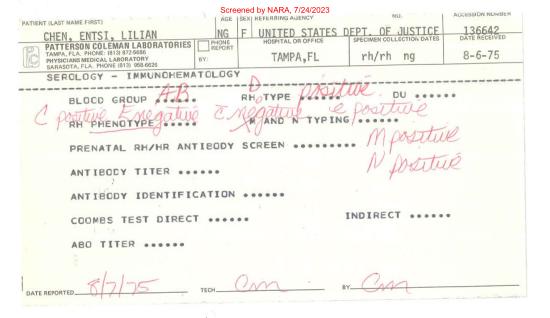 Screened by NARA, 7/24/2023
PATIENT (LAST NAME FIRST) AGE SEX REFERRING AGENCY NO. ACCESSION NUMBER
CHEN, ENTSI, LILIAN NG F UNITED STATES DEPT. OF JUSTICE 136642
PATTERSON COLEMAN LABORATORIES
TAMPA, FLA. PHONE: (813) 872-6686
PHYSICIANS MEDICAL LABORATORY
SARASOTA, FLA. PHONE (813) 958-6626
PHONE REPORT
BY:
HOSPITAL OR OFFICE SPECIMEN COLLECTION DATES DATE RECEIVED
TAMPA,FL rh/rh ng 8-6-75
SEROLOGY - IMMUNOHEMATOLOGY
BLOOD GROUP AB RH TYPE D positive DU ......
C positive E negative c negative e positive
RH PHENOTYPE ..... M AND N TYPING ......
M positive
PRENATAL RH/HR ANTIBODY SCREEN .........
N positive
ANTIBODY TITER ......
ANTIBODY IDENTIFICATION ......
COOMBS TEST DIRECT ...... INDIRECT ......
ABO TITER ......
DATE REPORTED 8/7/75 TECH. Cm BY Cm